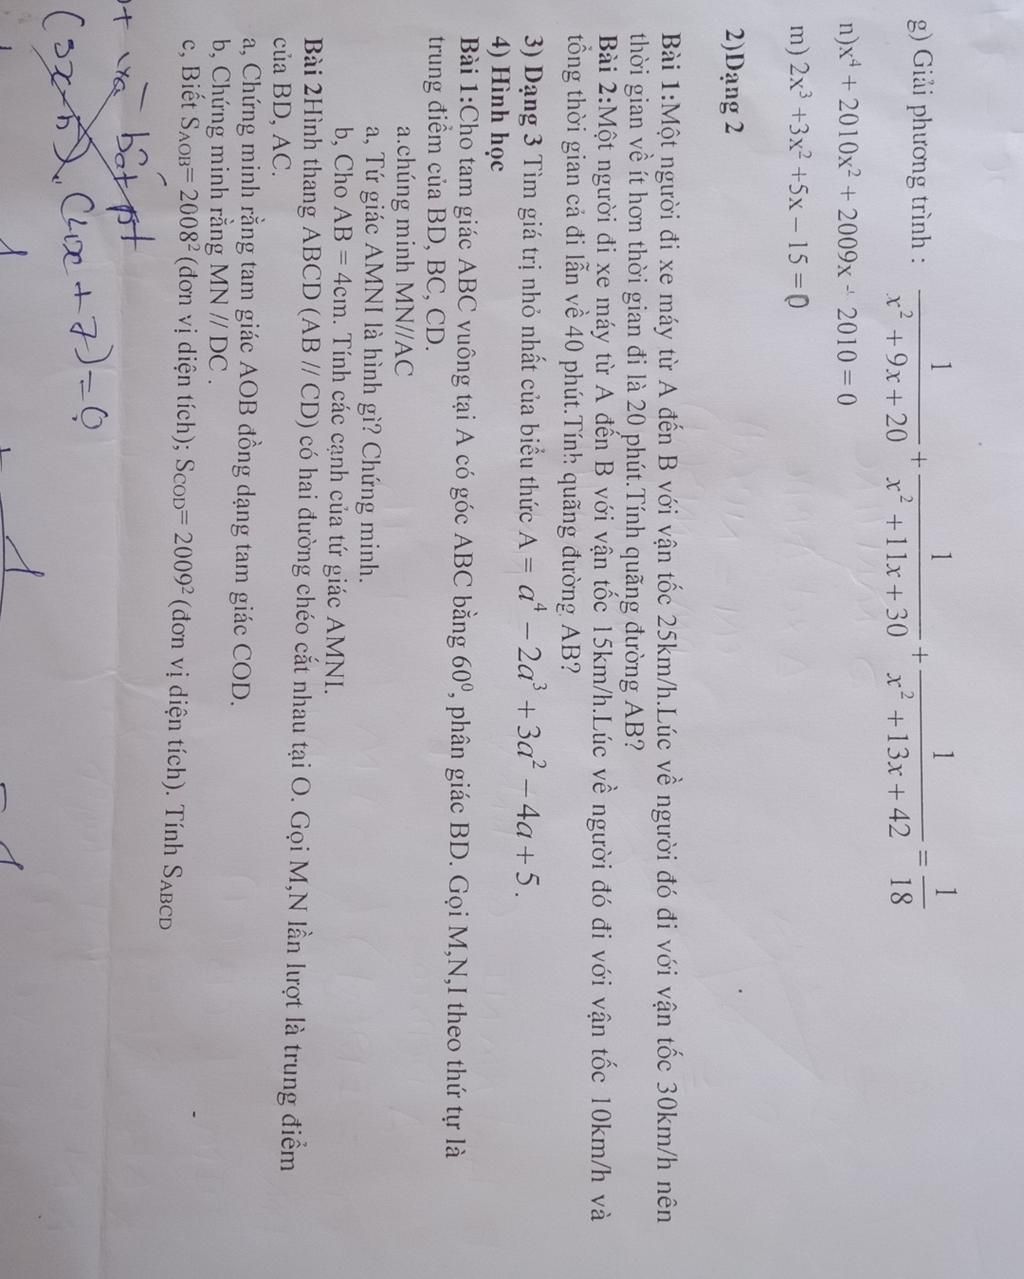 g) Giải phương trình : 1/(x² + 9x + 20) + 1/(x² + 11x + 30) + 1/(x² + 13x + 42) = 1/18
n)x⁴ + 2010x² + 2009x + 2010 = 0
m) 2x³ +3x² +5x – 15 = 0
2)Dạng 2
Bài 1:Một người đi xe máy từ A đến B với vận tốc 25km/h.Lúc về người đó đi với vận tốc 30km/h nên
thời gian về ít hơn thời gian đi là 20 phút.Tính quãng đường AB?
Bài 2:Một người đi xe máy từ A đến B với vận tốc 15km/h.Lúc về người đó đi với vận tốc 10km/h và
tổng thời gian cả đi lẫn về 40 phút.Tính quãng đường AB?
3) Dạng 3 Tìm giá trị nhỏ nhất của biểu thức A = a⁴ – 2a³ + 3a² – 4a + 5 .
4) Hình học
Bài 1:Cho tam giác ABC vuông tại A có góc ABC bằng 60⁰ , phân giác BD. Gọi M,N,I theo thứ tự là
trung điểm của BD, BC, CD.
a.chúng minh MN//AC
a, Tứ giác AMNI là hình gì? Chứng minh.
b, Cho AB = 4cm. Tính các cạnh của tứ giác AMNI.
Bài 2Hình thang ABCD (AB // CD) có hai đường chéo cắt nhau tại O. Gọi M,N lần lượt là trung điểm
của BD, AC.
a, Chứng minh rằng tam giác AOB đồng dạng tam giác COD.
b, Chứng minh rằng MN // DC .
c, Biết SAOB= 2008² (đơn vị diện tích); SCOD= 2009² (đơn vị diện tích). Tính SABCD
(4x + 7) = 0